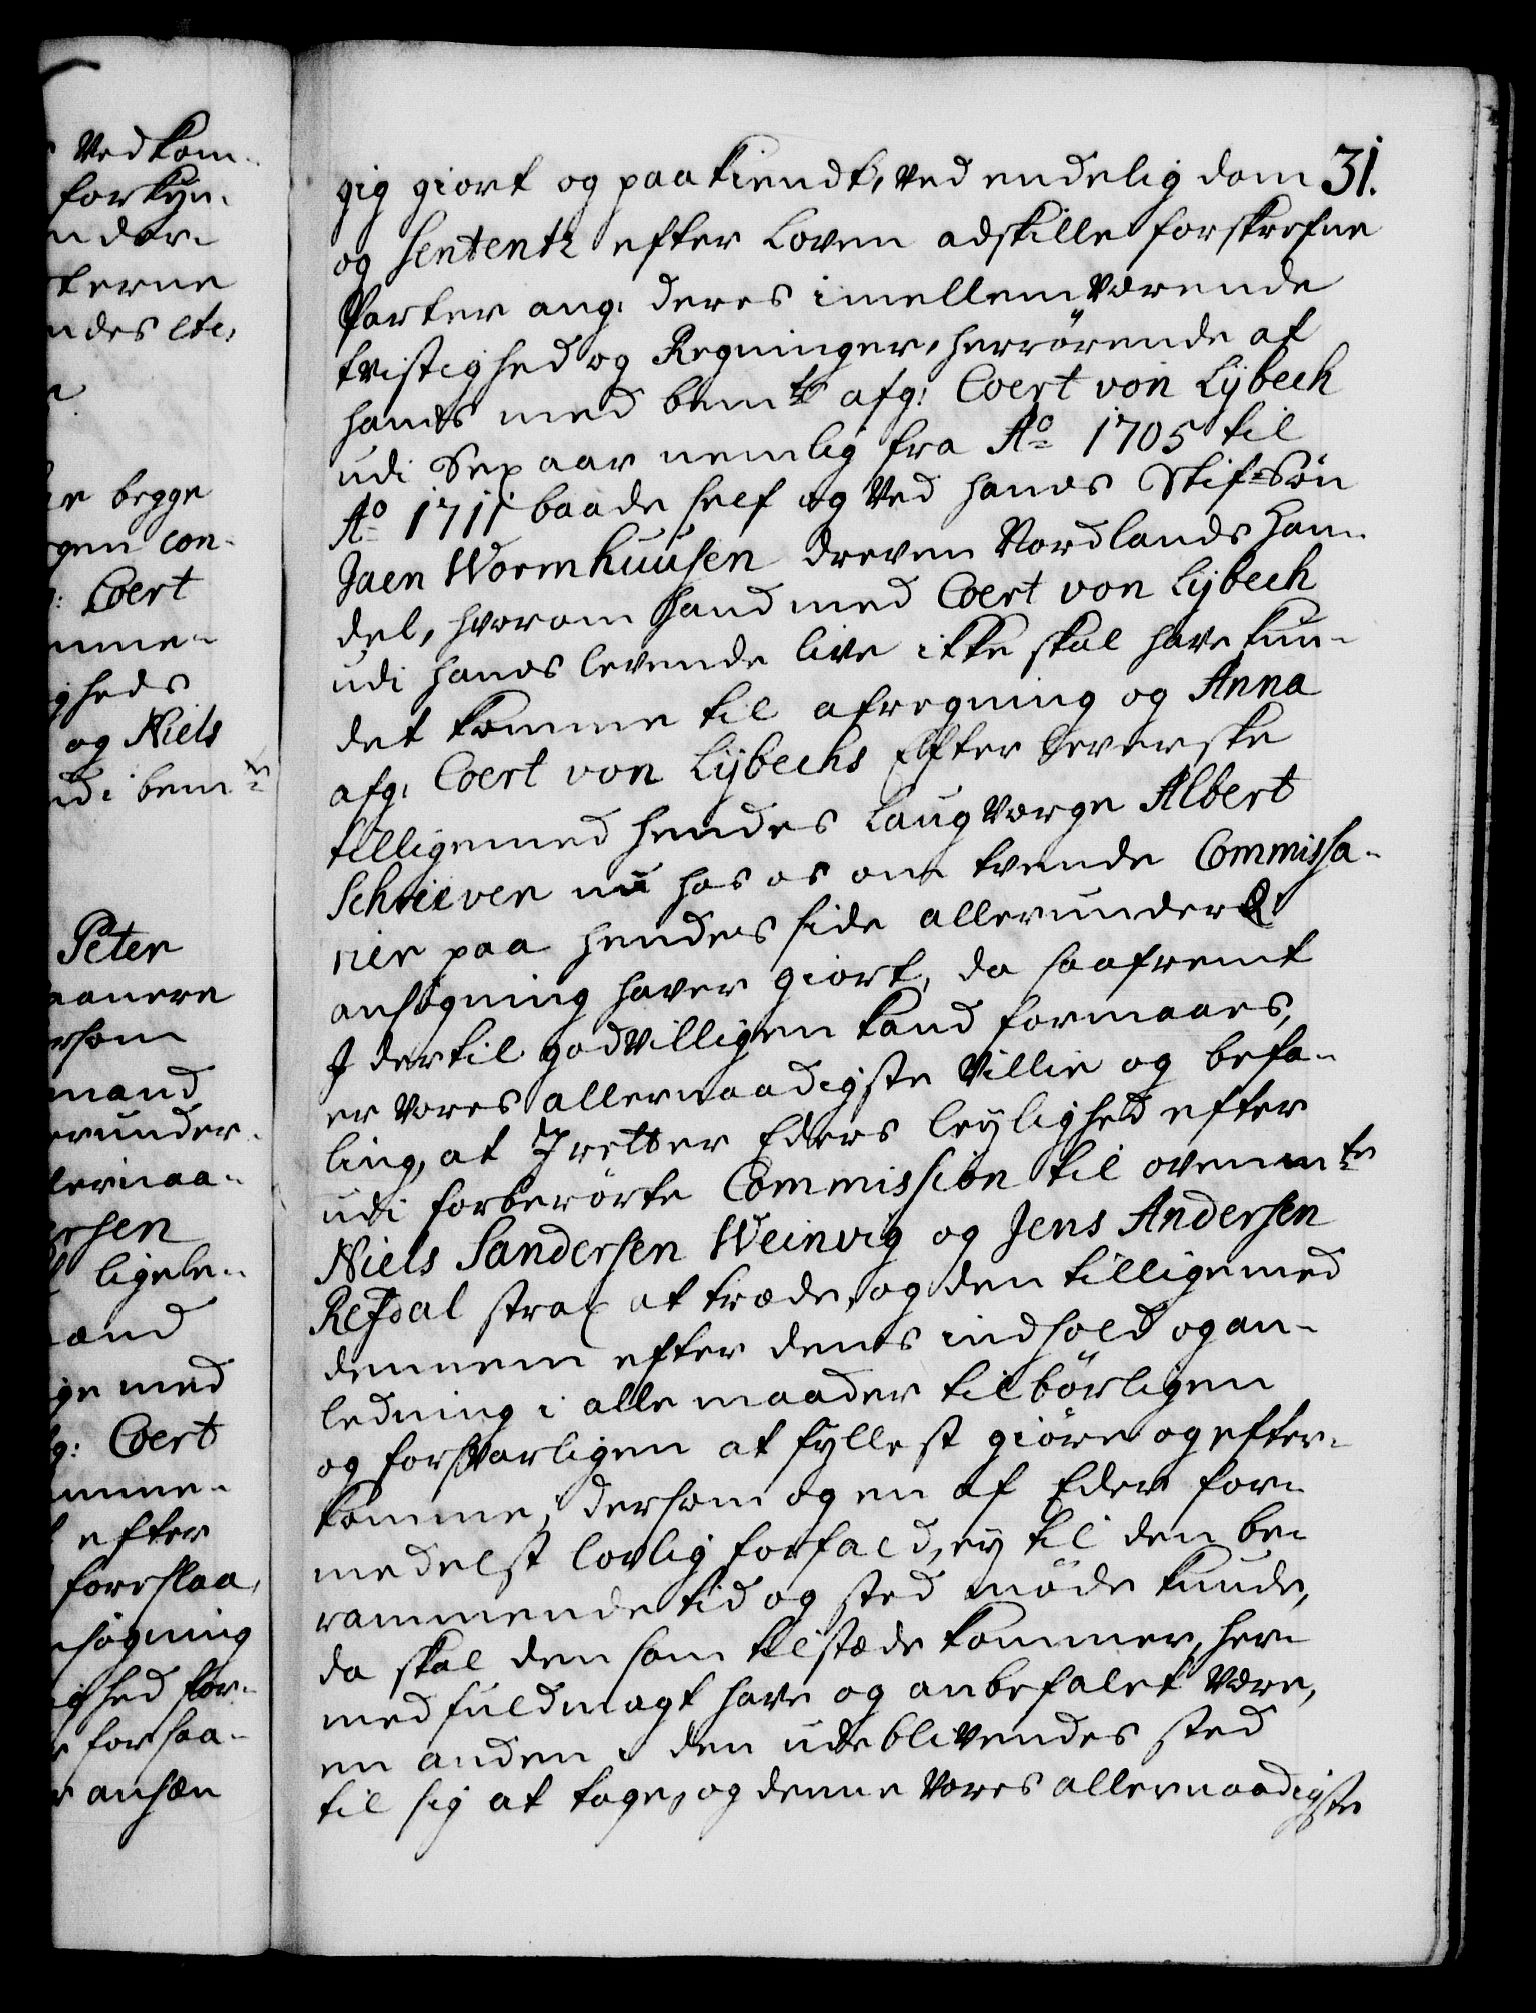 Vedkom-
forkyn-
nder-
kerne
ndes etc,
er begge
gen con-
: Coert
mme-
gheds
og Niels
ndi bemte
Peter
aanere
ersom
mand
erunder-
lernaa-
ersen
ligele-
and
ige med
g: Coert
mme-
efter
foreslaa,
nsøgning
ighed for-
forsaa-
r ansæn
31.
gig giort og paakiendt, ved endelig dom
og Sententz efter Loven adskille forskrefne
Parter ang: deres imellemværende
tvistighed og Regninger, herrørende af
hands med bemte afg: Coert von Lÿbech
udi Sex aar nemlig fra Ao 1705 til
Ao 1711 baade self og ved hands Stif-Søn
Jaen Wormhuusen dreven Nordlands Han-
del, hvorom hand med Coert von Lÿbech
udi hands levende live ikke skal have kun-
det komme til afregning og Anna
afg: Coert von Lÿbechs Efter Leverske
tilligemed hendes Laugværge Albert
Schreever nu hos os om tvende Commissa-
rier paa hendes side allerunderd:
ansøgning haver giort, da saafremt
I dertil godvilligen kand formaaes,
er vores allernaadigste Villie og befa-
ling, at I retter Eders leylighed efter
udi forberørte Commission til ovenmte
Niels Sandersen Weinvig og Jens Andersen
Refdal strax at træde, og den tilligemed
dennem efter dends indhold og an-
ledning i alle maader tilbørligen
og forsvarligen at fyllest giøre og efter-
komme, dersom og en af Eder for-
medelst lovlig forfald, ey til den be-
rammende tid og sted møde kunde,
da skal den som tilstæde kommer, her-
med fuldmagt have og anbefalet være,
en anden i den udeblivendes sted
til sig at tage, og denne Vores allernaadigste